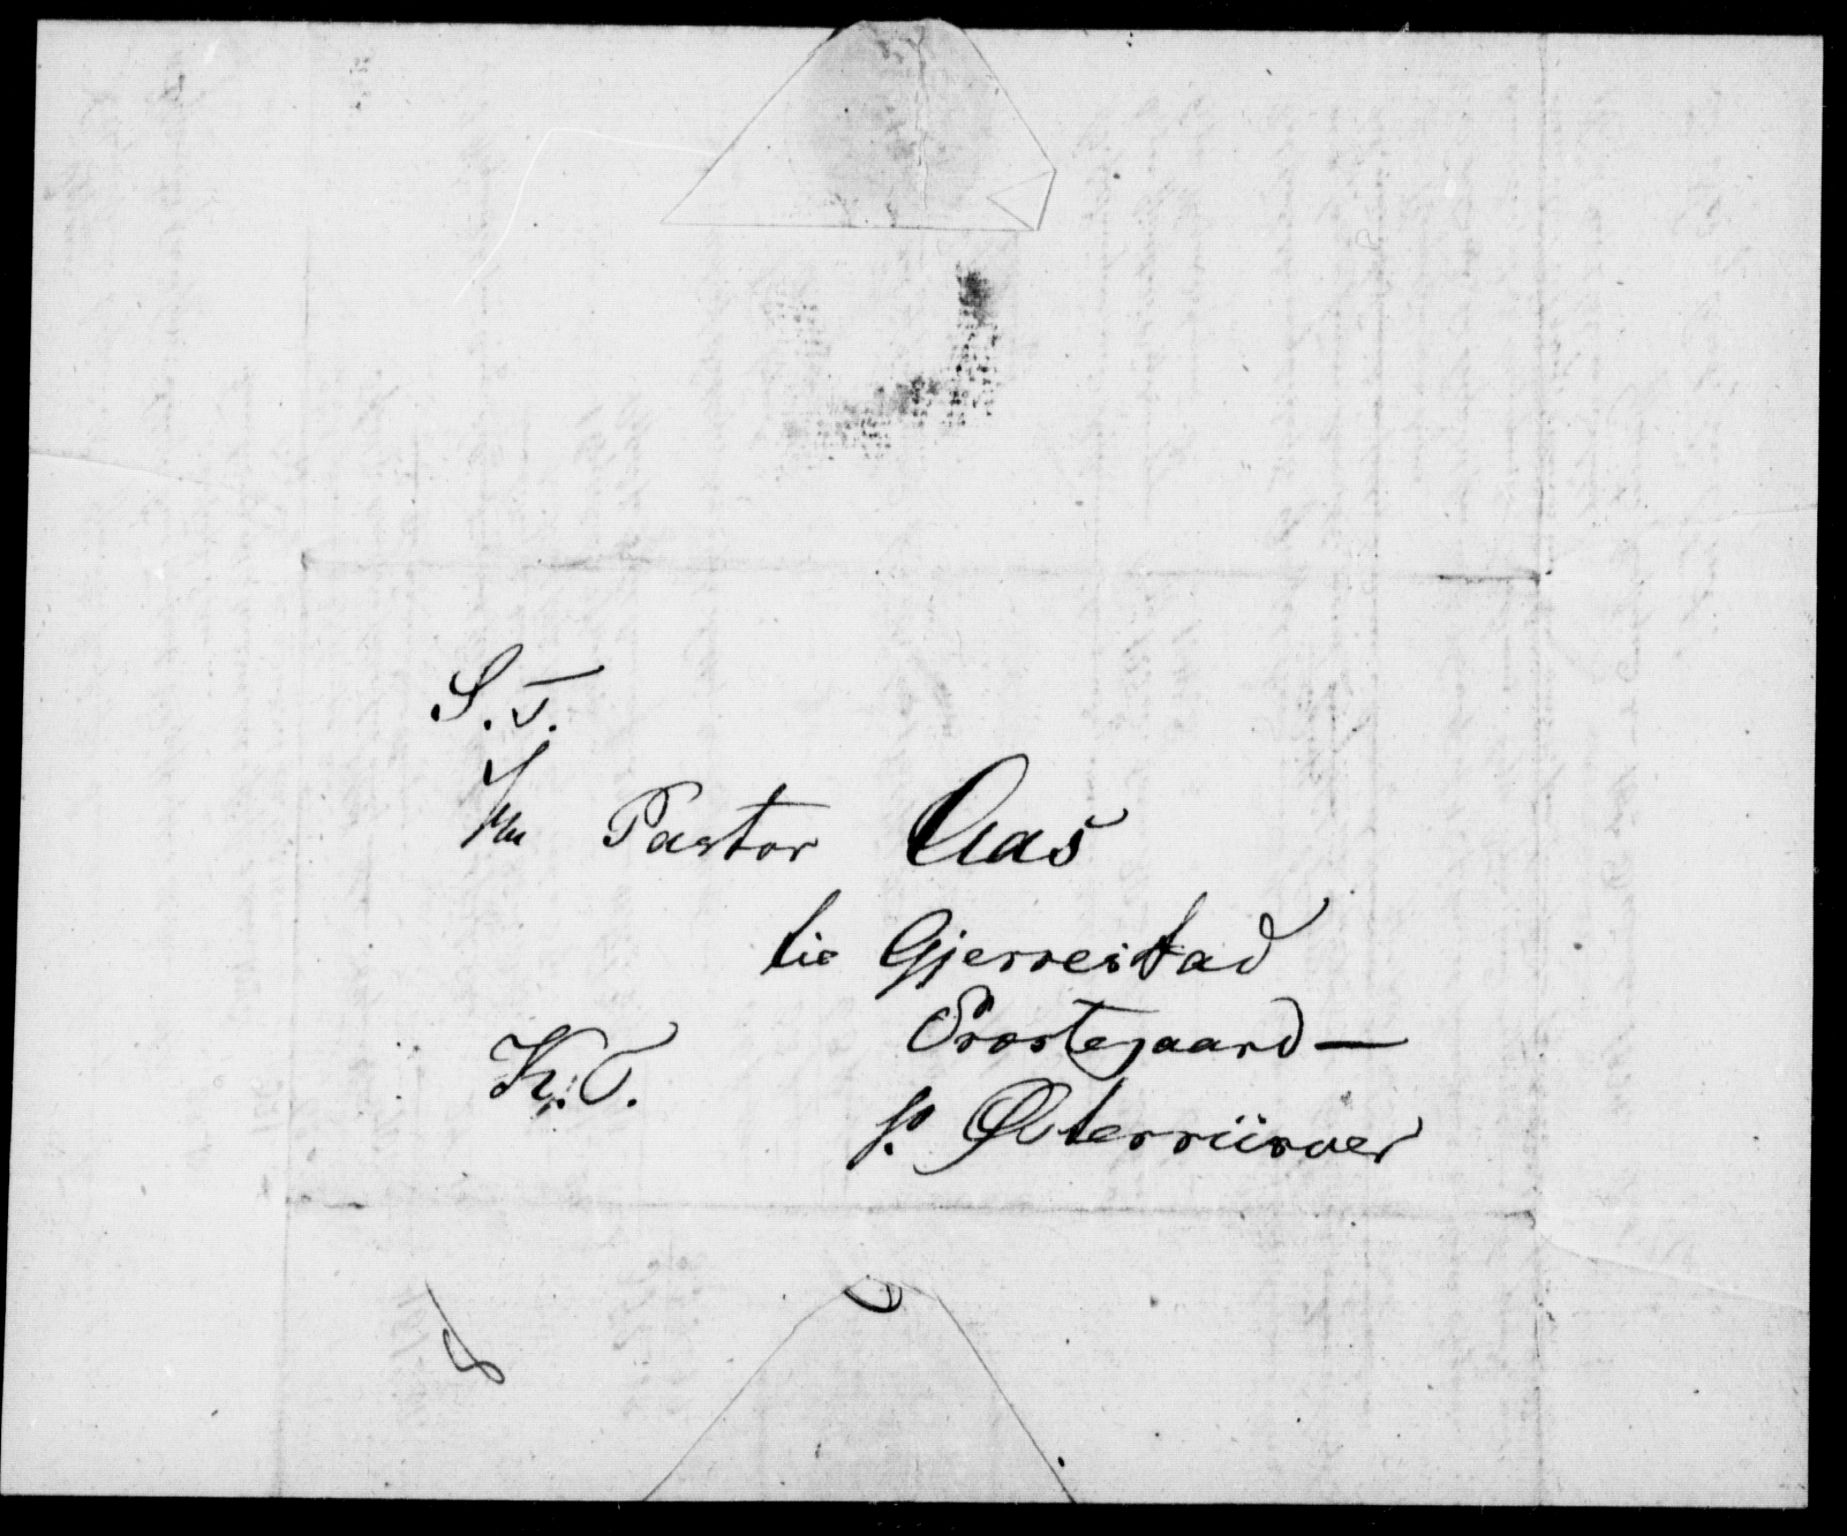 S. T.
Hr Pastor Aas
til Gjerrestad
Præstegaard —
p. Østerriisøer
K. T.